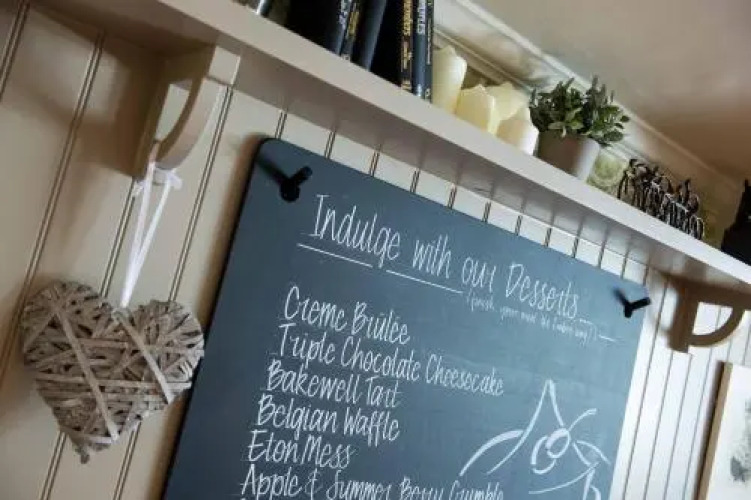 Indulge with our Desserts
Creme Brülée
Triple Chocolate Cheesecake
Bakewell Tart
Belgian Waffle
Eton Mess
Apple & Summer Berry Crumble